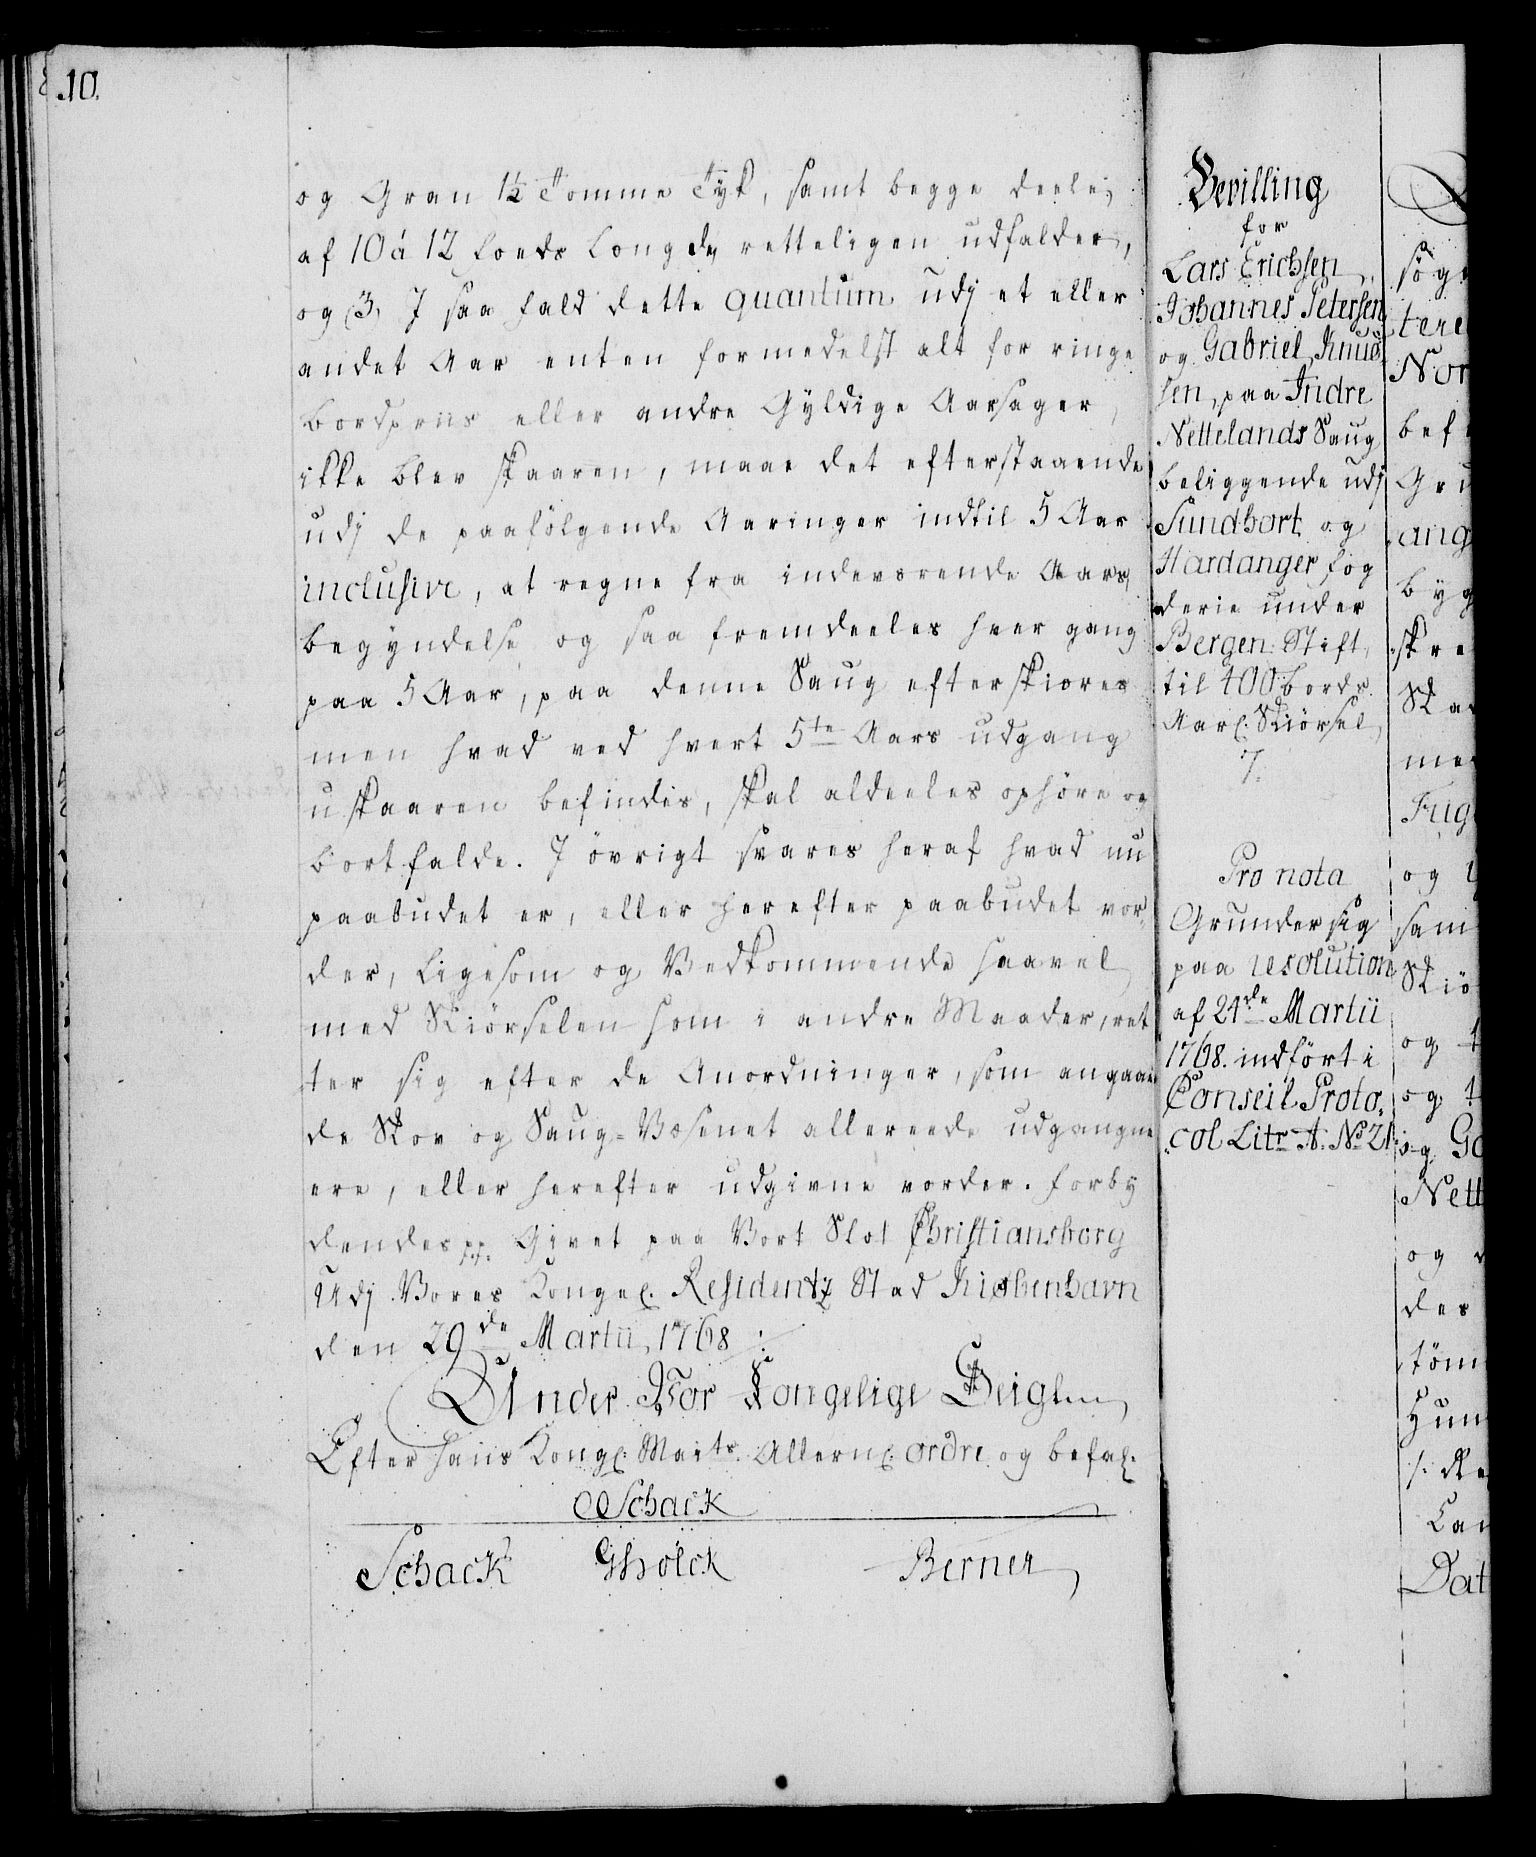 10.
og Gran 1½ Tomme Tyk, samt begge deele
af 10 à 12 foeds Longde retteligen udfalder,
og 3, I saa fald dette quantum udj et eller
andet Aar enten formedelst alt for ringe
bordpriis eller andre Gyldige Aarsager,
ikke blev skaaren, maae det efterstaaende
udj de paafölgende Aaringer indtil 5 Aar
inclusive, at regne fra indeværende Aars
begyndelse og saa fremdeeles hver gang
paa 5 Aar, paa denne Saug efterskiæres
men hvad ved hvert 5te Aars udgang
uskaaren befindes, skal aldeeles ophöre og
bortfalde. I övrigt svares heraf hvad nu
paabudet er, eller herefter paabudet vor-
der, ligesom og Vedkommende saavel
med Skiörselen som i andre Maader, ret
ter sig efter de Anordninger, som angaaen
de Skov og Saug-Væsenet allereede udgangne
ere, eller herefter udgivne vorder. forby
dendes pp. Givet paa Vort Slot Christiansborg
Udj Vores Kongel. Residentz Stad Kiøbenhavn
den 29de Martii 1768 :/
Under Vor Kongelige Zeigl
Efter hans Kongl. Maits. Allern. ordre og befal.
Schack
Schack GHolck Berner
Bevilling
for
Lars Erichsen,
Johannes Petersen
og Gabriel Knud
sen, paa Indre
Nettelands Saug
beliggende udj
Sundhort og
Hardanger fog
derie under
Bergen: Stift,
til 400 bords
Aarl. Skiörsel
7.
Pro nota
Grunder sig
paa resolution
af 24de Martii
1768. indført i
Conseil Proto-
col Litr A. No 21.
söge
tere
Nor
bef
Gru
ang
byg
skre
Ska
me
Fug
og
sam
Skiö
og t
og t
og Ga
Nett
og
des
töm
Hun
/: Re
Cam
Dat